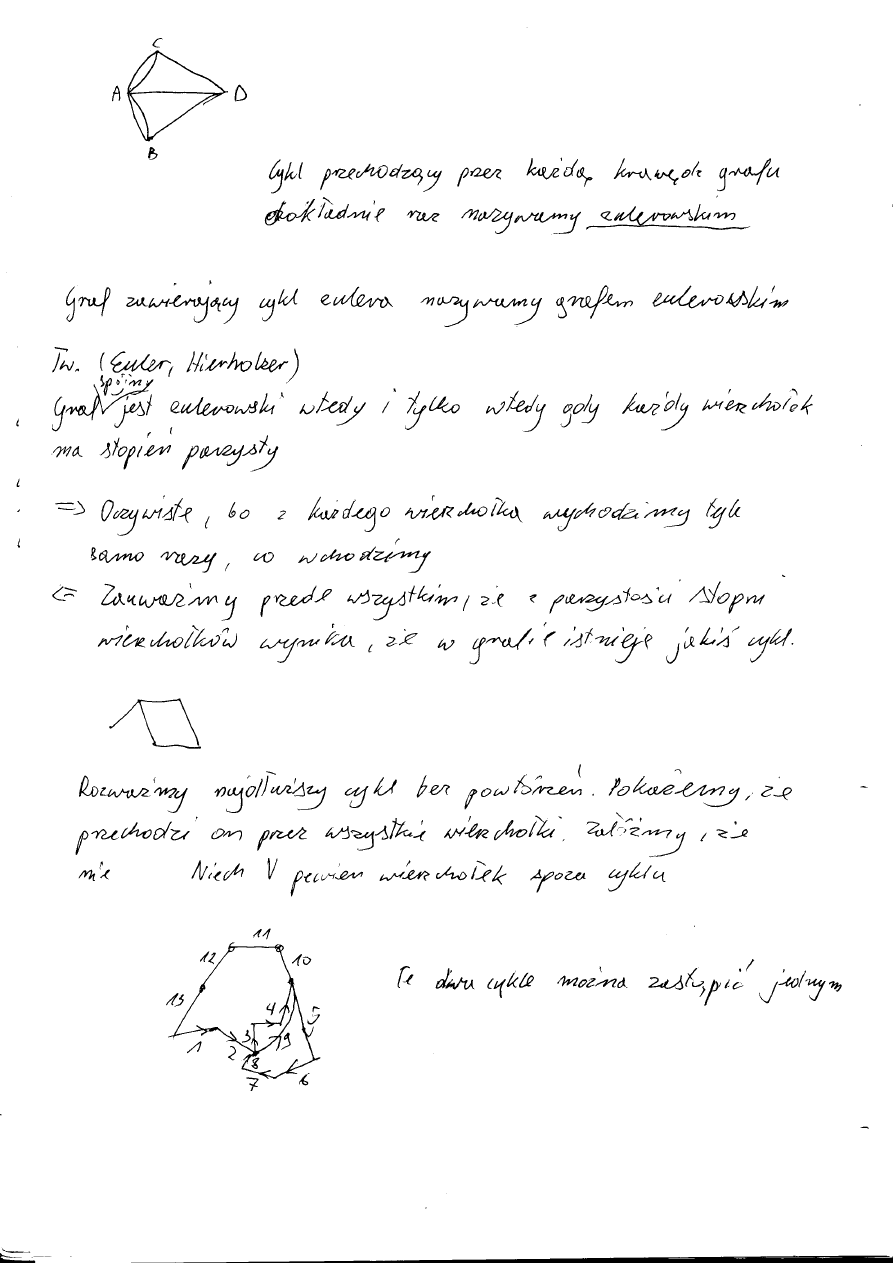 C
A D
B
Cykl przechodzący przez każdą krawędź grafu
dokładnie raz nazywamy eulerowskim
Graf zawierający cykl eulera nazywamy grafem eulerowskim
Tw. (Euler, Hierholzer)
spójny
Graf jest eulerowski wtedy i tylko wtedy gdy każdy wierzchołek
ma stopień parzysty
=> Oczywiste, bo z każdego wierzchołka wychodzimy tyle
samo razy, co wchodzimy
<= Zauważmy przede wszystkim, że z parzystości stopni
wierzchołków wynika, że w grafie istnieje jakiś cykl.
Rozważmy najdłuższy cykl bez powtórzeń. Pokażemy, że
przechodzi on przez wszystkie wierzchołki. Załóżmy, że
nie Niech V pewien wierzchołek spoza cyklu
11
12 10
13 4 5
Te dwa cykle można zastąpić jednym
1 2 3 9
8
7 6